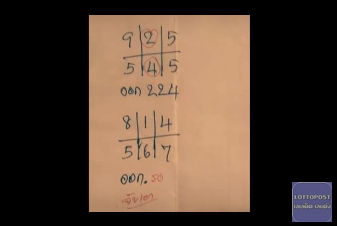 9 2 5
5 4 5
ออก 224
8 1 4
5 6 7
ออก. รอ
LOTTOPOST